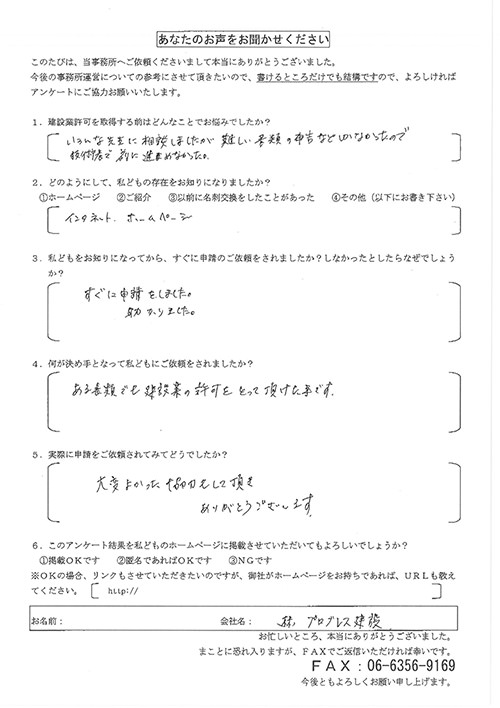 あなたのお声をお聞かせください
このたびは、当事務所へご依頼くださいまして本当にありがとうございました。
今後の事務所運営についての参考にさせて頂きたいので、書けるところだけでも結構ですので、よろしければ
アンケートにご協力お願いいたします。
1．建設業許可を取得する前はどんなことでお悩みでしたか？
いろんな先生に相談しましたが難しい書類の申告などいなかったので
前に進まなかった。
2．どのようにして、私どもの存在をお知りになりましたか？
①ホームページ ②ご紹介 ③以前に名刺交換をしたことがあった ④その他（以下にお書き下さい）
インタネット．ホームページ
3．私どもをお知りになってから、すぐに申請のご依頼をされましたか？しなかったとしたらなぜでしょう
か？
すぐに申請をしました。
助かりました。
4．何が決め手となって私どもにご依頼をされましたか？
ある書類でも建設業の許可をとって頂けた事です。
5．実際に申請をご依頼されてみてどうでしたか？
大変よかった 協力をして頂き
ありがとうございます。
6．このアンケート結果を私どものホームページに掲載させていただいてもよろしいでしょうか？
①掲載OKです ②匿名であればOKです ③NGです
※OKの場合、リンクもさせていただきたいのですが、御社がホームページをお持ちであれば、URLも教え
てください。 http://
お名前： 会社名： ㈱プログレス建設
お忙しいところ、本当にありがとうございました。
まことに恐れ入りますが、FAXでご返信いただければ幸いです。
FAX：06-6356-9169
今後ともよろしくお願い申し上げます。